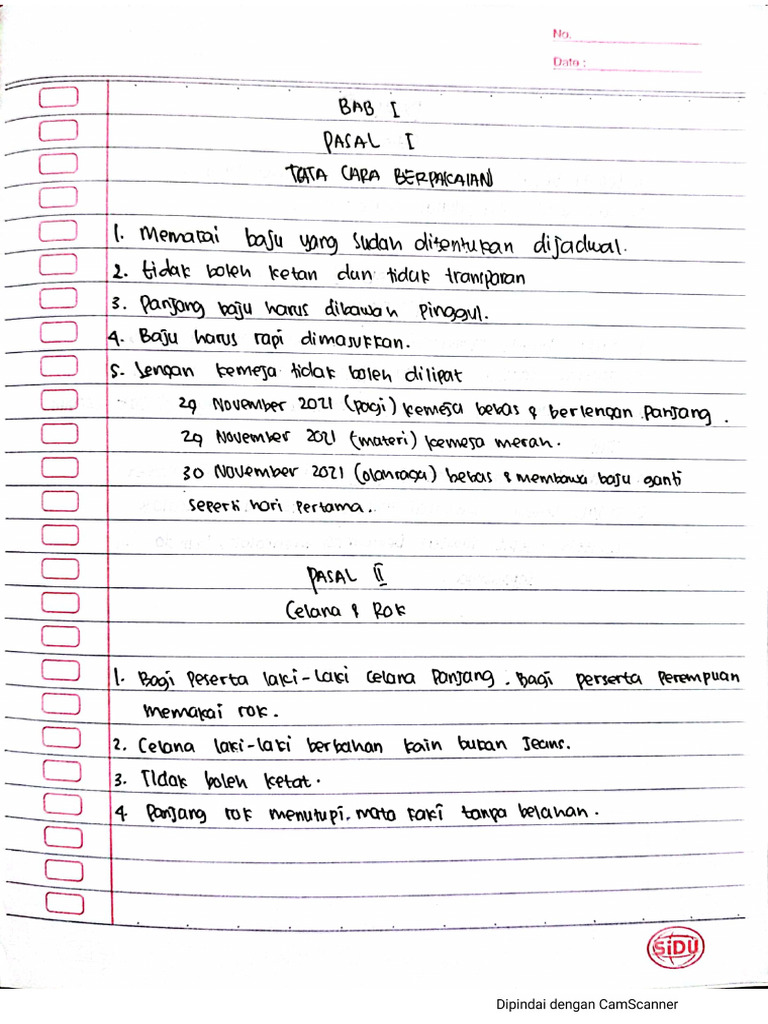 No.
Date :
BAB I
PASAL I
TATA CARA BERPAKAIAN
1. Memakai baju yang sudah ditentukan dijadwal.
2. tidak boleh ketan dan tidak transparan
3. Panjang baju harus dibawah pinggul.
4. Baju harus rapi dimasukkan.
5. Lengan kemeja tidak boleh dilipat
29 November 2021 (pagi) kemeja bebas & berlengan panjang.
29 November 2021 (materi) kemeja merah.
30 November 2021 (olahraga) bebas & membawa baju ganti
seperti hari pertama.
PASAL II
Celana & Rok
1. Bagi peserta laki-laki celana panjang. Bagi perserta perempuan
memakai rok.
2. Celana laki-laki berbahan kain bukan Jeans.
3. Tidak boleh ketat.
4. Panjang rok menutupi mata kaki tanpa belahan.
SiDU
Dipindai dengan CamScanner